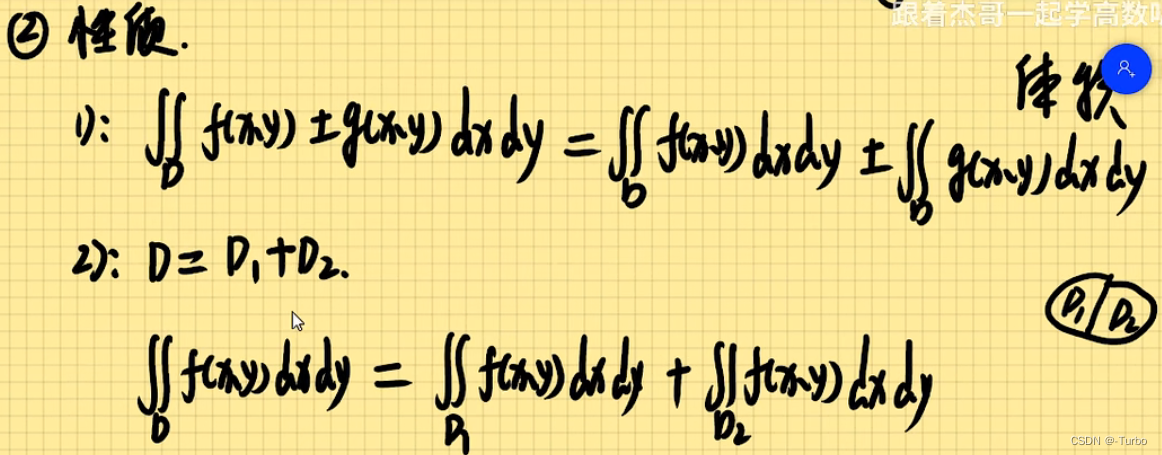 跟着杰哥一起学高数吧
② 性质.
体积
1): ∬_D f(x,y) ± g(x,y) dx dy = ∬_D f(x,y) dx dy ± ∬_D g(x,y) dx dy
2): D = D₁+D₂.
D₁ D₂
∬_D f(x,y) dx dy = ∬_D₁ f(x,y) dx dy + ∬_D₂ f(x,y) dx dy
CSDN @-Turbo